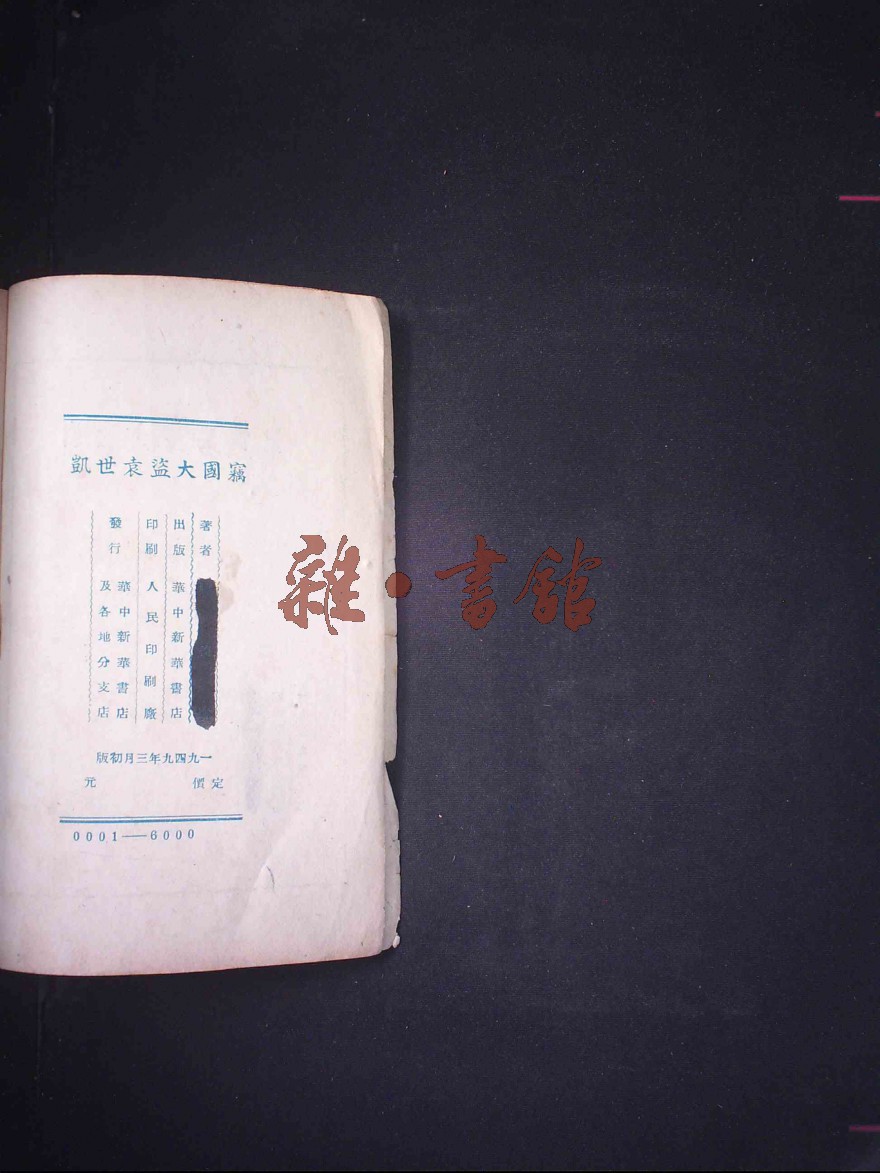 竊國大盜袁世凱
著者
出版 華中新華書店
印刷 人民印刷廠
發行 華中新華書店
及各地分支店
一九四九年三月初版
定價 元
0001—6000
雜·書館